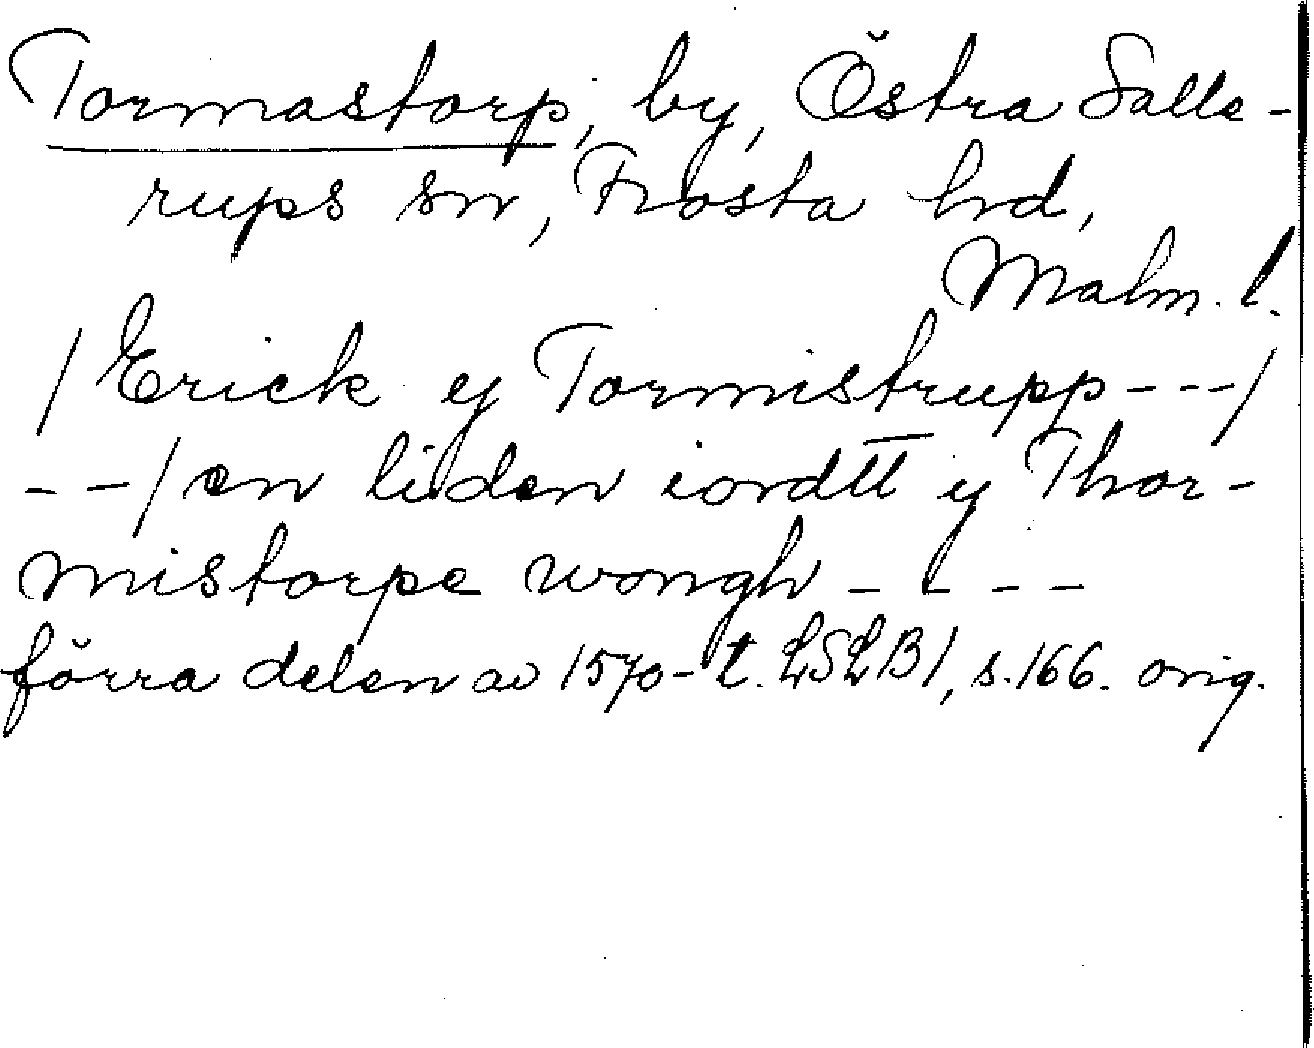 Tormastorp, by, Östra Salle-
rups sn, Frosta hd,
Malm. l.
/Erick y Tormistrupp---/
--/en liden iordtt y Thor-
mistorpe wongh ----
förra delen av 1570-t. LSLB1, s. 166. orig.